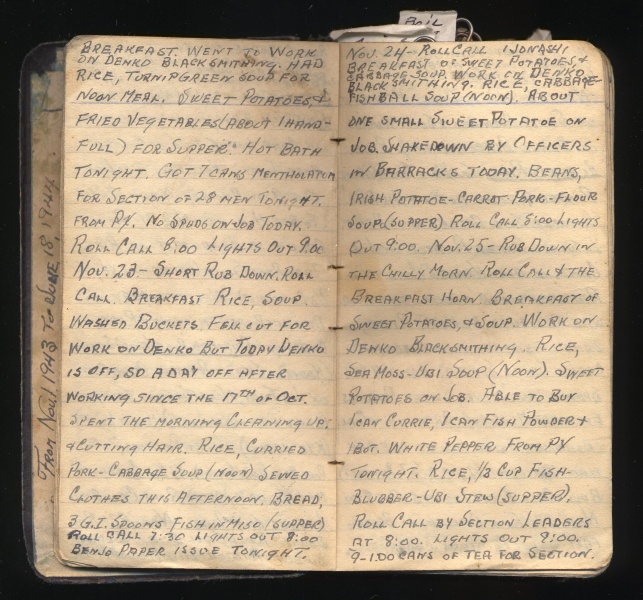 BREAKFAST. WENT TO WORK
ON DENKO BLACKSMITHING. HAD
RICE, TURNIPGREEN SOUP FOR
NOON MEAL. SWEET POTATOES, &
FRIED VEGETABLES (ABOUT 1 HAND-
FULL) FOR SUPPER. HOT BATH
TONIGHT. GOT 7 CANS MENTHOLATUM
FOR SECTION OF 28 MEN TONIGHT.
FROM PX. NO SPUDS ON JOB TODAY.
ROLL CALL 8:00 LIGHTS OUT 9:00
NOV. 23- SHORT RUB DOWN. ROLL
CALL. BREAKFAST RICE, SOUP.
WASHED BUCKETS. FELL OUT FOR
WORK ON DENKO BUT TODAY DENKO
IS OFF, SO A DAY OFF AFTER
WORKING SINCE THE 17TH OF OCT.
SPENT THE MORNING CLEANING UP,
& CUTTING HAIR. RICE, CURRIED
PORK-CABBAGE SOUP (NOON) SEWED
CLOTHES THIS AFTERNOON. BREAD,
3 G.I. SPOONS FISH IN MISO (SUPPER)
ROLL CALL 7:30 LIGHTS OUT 8:00
BENJO PAPER ISSUE TONIGHT.
FROM NOV. 1 1943 TO JUNE 18, 1944
NOV. 24- ROLL CALL
BREAKFAST OF SWEET POTATOES, &
CABBAGE SOUP. WORK ON DENKO
BLACKSMITHING. RICE, CABBAGE-
FISHBALL SOUP (NOON). ABOUT
ONE SMALL SWEET POTATOE ON
JOB. SHAKEDOWN BY OFFICERS
IN BARRACKS TODAY. BEANS,
IRISH POTATOE-CARROT-PORK-FLOUR
SOUP. (SUPPER) ROLL CALL 8:00 LIGHTS
OUT 9:00. NOV. 25- RUB DOWN IN
THE CHILLY MORN. ROLL CALL & THE
BREAKFAST HORN. BREAKFAST OF
SWEET POTATOES, & SOUP. WORK ON
DENKO BLACKSMITHING. RICE,
SEA MOSS-UBI SOUP (NOON). SWEET
POTATOES ON JOB. ABLE TO BUY
1 CAN CURRIE, 1 CAN FISH POWDER &
1 BOT. WHITE PEPPER FROM PX
TONIGHT. RICE, 1/3 CUP FISH-
BLUBBER-UBI STEW (SUPPER).
ROLL CALL BY SECTION LEADERS
AT 8:00. LIGHTS OUT 9:00.
CANS OF TEA FOR SECTION.